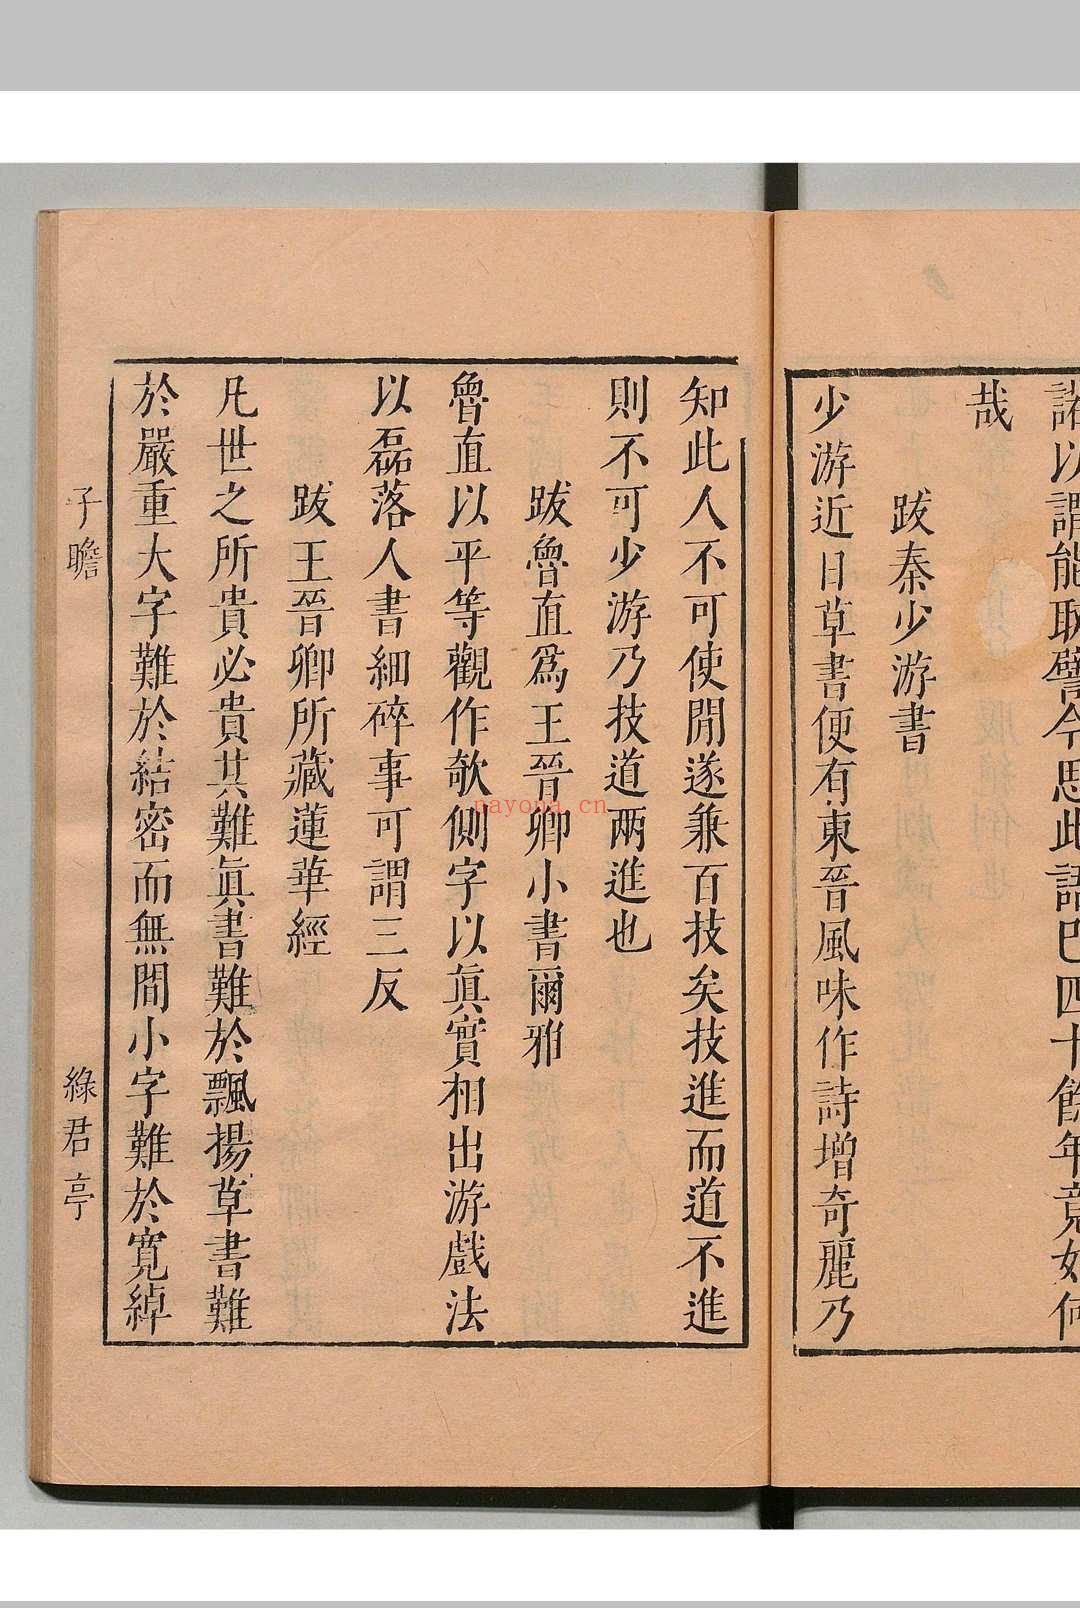 諾以謂能耿譬今思此語巴四十餘年竟如何
哉
跋秦少游書
少游近日草書便有東晉風味作詩增奇麗乃
知此人不可使閒遂兼百技矣技進而道不進
則不可少游乃技道兩進也
跋魯直爲王晉卿小書爾雅
魯直以平等觀作欹側字以眞實相出游戲法
以磊落人書細碎事可謂三反
跋王晉卿所藏蓮華經
凡世之所貴必貴其難眞書難於飄揚草書難
於嚴重大字難於結密而無間小字難於寬綽
子瞻
綠君亭
nayona.cn